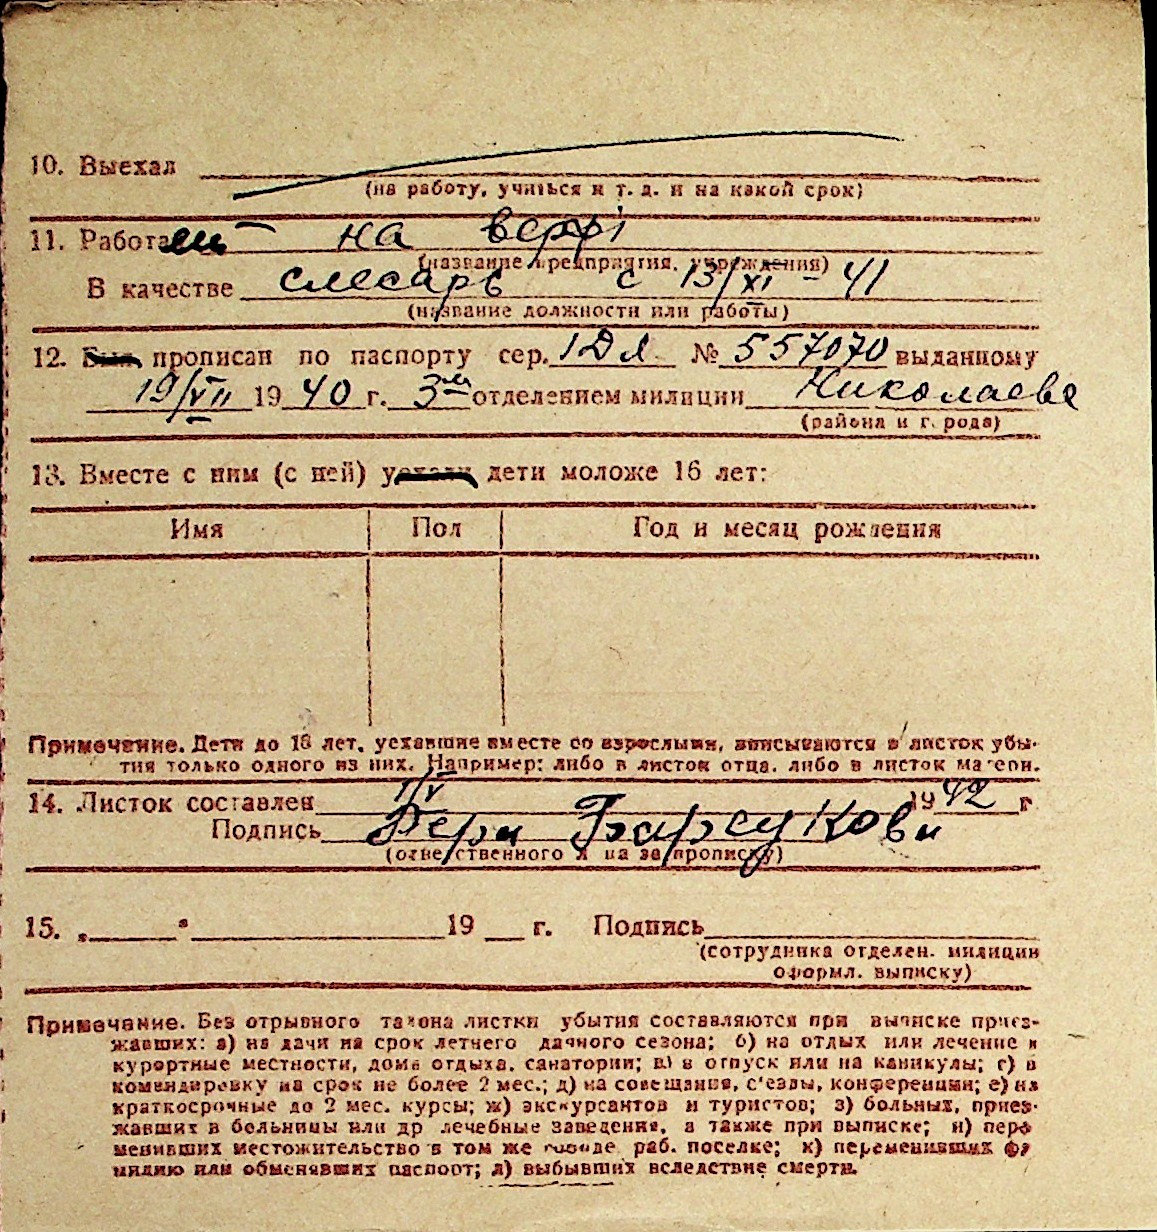 10. Выехал
(на работу, учиться и т. д. и на какой срок)
11. Работает на верфі
(название предприятия, учреждения)
В качестве слесарь с 13/XI – 41
(название должности или работы)
12. Был прописан по паспорту сер. 1 Д Л № 557070 выданному
19/VII 1940 г. 3им отделением милиции Николаева
(района и города)
13. Вместе с ним (с ней) уехали дети моложе 16 лет:
Имя Пол Год и месяц рождения
Примечание. Дети до 16 лет, уехавшие вместе со взрослыми, вписываются в листок убы-
тия только одного из них. Например: либо в листок отца, либо в листок матери.
14. Листок составлен 1/V 1942 г
Подпись Барсукова
(ответственного лица за прописку)
15. „ " 19 г. Подпись
(сотрудника отделен. милиции
оформл. выписку)
Примечание. Без отрывного талона листки убытия составляются при выписке приез-
жавших: а) на дачи на срок летнего дачного сезона; б) на отдых или лечение в
курортные местности, дома отдыха, санатории; в) в отпуск или на каникулы; г) в
командировку на срок не более 2 мес.; д) на совещания, с'езды, конференции; е) на
краткосрочные до 2 мес. курсы; ж) экскурсантов и туристов; з) больных, приез-
жавших в больницы или др лечебные заведения, а также при выписке; и) пере
менивших местожительство в том же городе раб. поселке; к) переменивших фа
милию или обменявших паспорт; л) выбывших вследствие смерти.